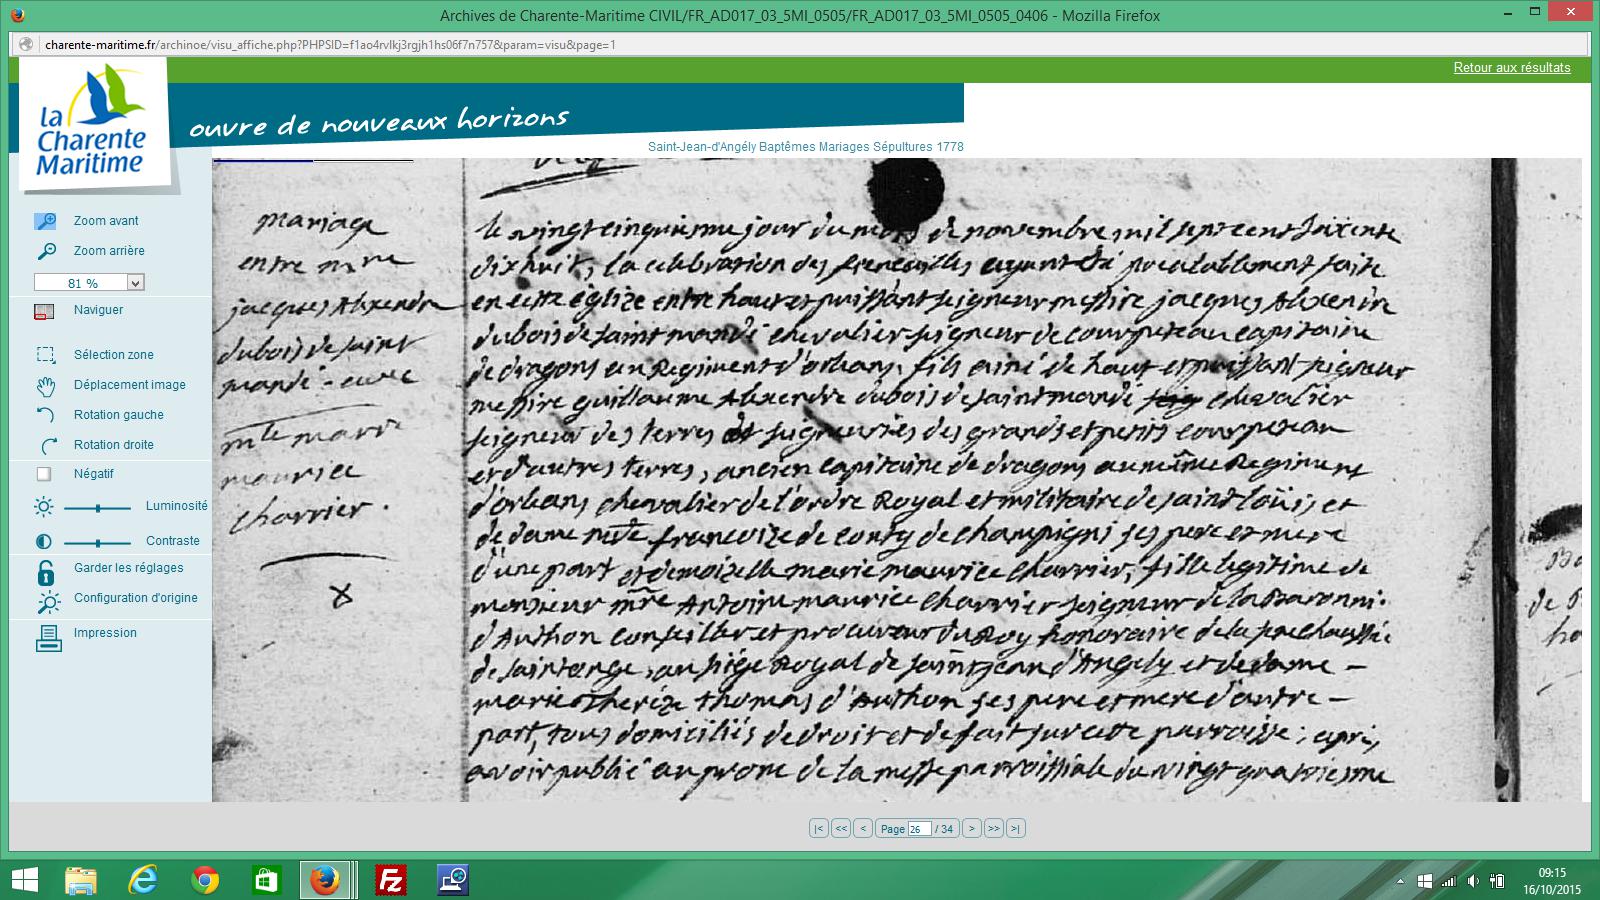 Archives de Charente-Maritime CIVIL/FR_AD017_03_5MI_0505/FR_AD017_03_5MI_0505_0406 - Mozilla Firefox
charente-maritime.fr/archinoe/visu_affiche.php?PHPSID=f1ao4rvlkj3rgjh1hs06f7n757&param=visu&page=1
Retour aux résultats
la
Charente
Maritime
ouvre de nouveaux horizons
Saint-Jean-d'Angély Baptêmes Mariages Sépultures 1778
Zoom avant
Zoom arrière
81 %
Naviguer
Sélection zone
Déplacement image
Rotation gauche
Rotation droite
Négatif
Luminosité
Contraste
Garder les réglages
Configuration d'origine
Impression
mariage
entre mre
jacques Alexendre
dubois de saint
mandé - avec
mlle marie
maurice
charrier.
le vingt cinquieme jour du mois de novembre mil sept cent soixente
dix huit, la celebration des fiencailles ayant été préalablement faite
en cette églize entre haut et puissant seigneur messire jacques Alexendre
dubois de saint mandé chevalier seigneur de courpeteau capitaine
de dragons au Regiment d'orleans, fils ainé de haut et puissant seigneur
messire guillaume Alexendre dubois de saint mandé chevalier
seigneur des terres et seigneuries des grands et petits courpeteau
et d'autres terres, ancien capitaine de dragons au même Regiment
d'orleans chevalier de l'ordre Royal et militaire de saint loüis, et
de dame francoize de conty de champigni ses pere et mere
d'une part et demoizelle marie maurice charrier, fille legitime de
monsieur mre Antoine maurice charrier seigneur de la Baronni.
d'Authon conseiller et procureur du Roy honoraire de la
de saintonge, au siége Royal de saint jean d'Angely et de dame -
marie therèze thomas d'Authon ses pere et mere d'autre -
part, tous domiciliés de droit et de fait sur cette parroisse; après
avoir publié au prone de la messe parroissiale du vingt quatriesme
Page 26 / 34
09:15
16/10/2015